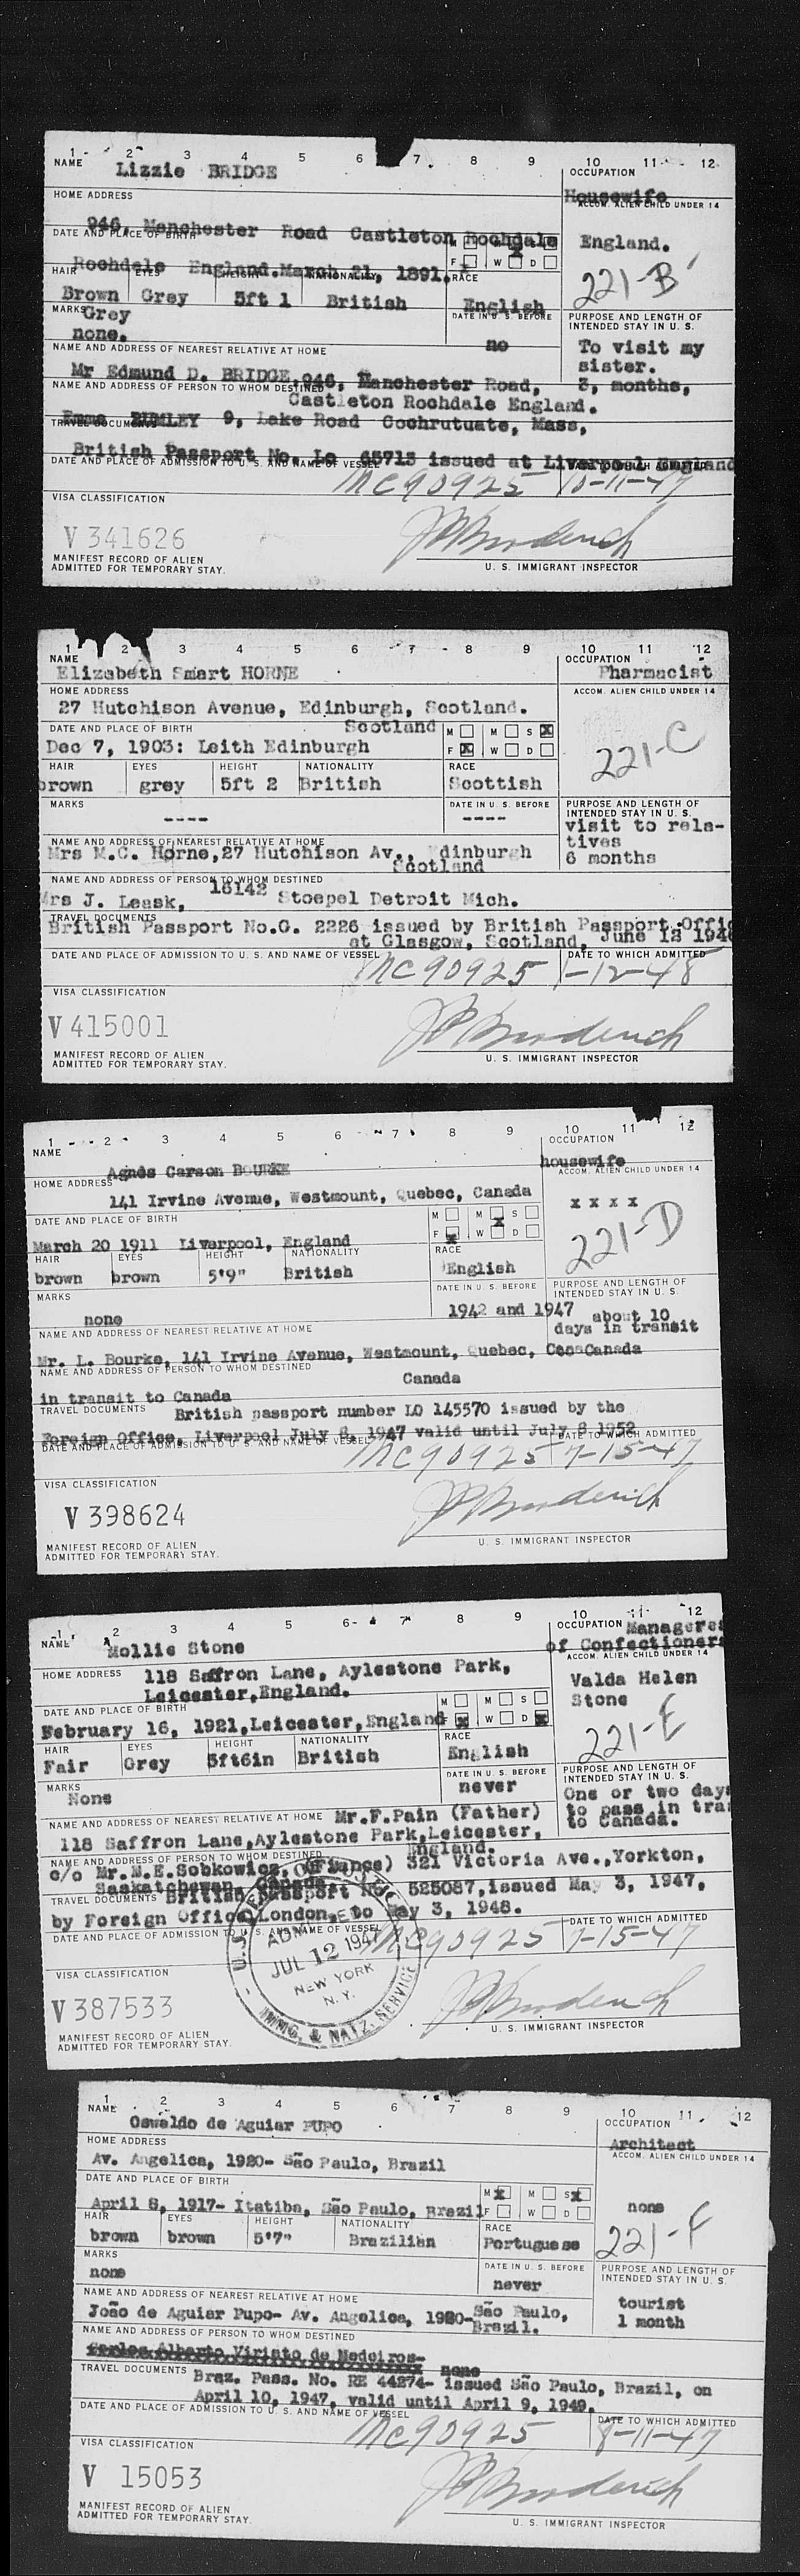 1 2 3 4 5 6 7 8 9 10 11 12
NAME Lizzie BRIDGE
OCCUPATION
Housewife
HOME ADDRESS
ACCOM. ALIEN CHILD UNDER 14
946, Manchester Road Castleton Rochdale
England.
DATE AND PLACE OF BIRTH
M M S
F W D
Rochdale England.March 21, 1891.
221-B
HAIR EYES HEIGHT NATIONALITY RACE
Brown Grey 5ft 1 British English
MARKS Grey
DATE IN U. S. BEFORE
PURPOSE AND LENGTH OF
INTENDED STAY IN U. S.
none.
no
To visit my
sister.
3, months,
NAME AND ADDRESS OF NEAREST RELATIVE AT HOME
Mr Edmund D. BRIDGE,946, Manchester Road,
NAME AND ADDRESS OF PERSON TO WHOM DESTINED
Castleton Rochdale England.
Emma 9, Lake Road Cochrutuate, Mass,
TRAVEL DOCUMENTS
British Passport No. Lo 65713 issued at Liverpool England
DATE AND PLACE OF ADMISSION TO U. S. AND NAME OF VESSEL
DATE TO WHICH ADMITTED
NC90925 10-11-47
VISA CLASSIFICATION
V 341626
MANIFEST RECORD OF ALIEN
ADMITTED FOR TEMPORARY STAY.
U. S. IMMIGRANT INSPECTOR
1 2 3 4 5 6 7 8 9 10 11 12
NAME
OCCUPATION
Elizabeth Smart HORNE
Pharmacist
HOME ADDRESS
ACCOM. ALIEN CHILD UNDER 14
27 Hutchison Avenue, Edinburgh, Scotland.
DATE AND PLACE OF BIRTH Scotland
M M S X
Dec 7, 1903: Leith Edinburgh
F X W D
221-C
HAIR EYES HEIGHT NATIONALITY RACE
brown grey 5ft 2 British Scottish
MARKS
DATE IN U. S. BEFORE
PURPOSE AND LENGTH OF
INTENDED STAY IN U. S.
----
----
visit to rela-
tives
6 months
NAME AND ADDRESS OF NEAREST RELATIVE AT HOME
Mrs M.C. Horne,27 Hutchison Av., dinburgh
Scotland
NAME AND ADDRESS OF PERSON TO WHOM DESTINED
Mrs J. Leask, 16142 Stoepel Detroit Mich.
TRAVEL DOCUMENTS
British Passport No.G. 2226 issued by British Passport Offic
at Glasgow, Scotland, June 12 194
DATE AND PLACE OF ADMISSION TO U. S. AND NAME OF VESSEL
DATE TO WHICH ADMITTED
NC90925 1-12-48
VISA CLASSIFICATION
V 415001
MANIFEST RECORD OF ALIEN
ADMITTED FOR TEMPORARY STAY.
U. S. IMMIGRANT INSPECTOR
1 2 3 4 5 6 7 8 9 10 11 12
NAME
OCCUPATION
Agnes Carson BOURKE
housewife
HOME ADDRESS
ACCOM. ALIEN CHILD UNDER 14
141 Irvine Avenue, Westmount, Quebec, Canada
x x x x
DATE AND PLACE OF BIRTH
M M x S
F x W D
March 20 1911 Liverpool, England
221-D
HAIR EYES HEIGHT NATIONALITY RACE
brown brown 5'9" British English
MARKS
DATE IN U. S. BEFORE
PURPOSE AND LENGTH OF
INTENDED STAY IN U. S.
none
1942 and 1947
about 10
days in transit
NAME AND ADDRESS OF NEAREST RELATIVE AT HOME
Mr. L. Bourke, 141 Irvine Avenue, Westmount, Quebec, Canada
NAME AND ADDRESS OF PERSON TO WHOM DESTINED
Canada
in transit to Canada
TRAVEL DOCUMENTS British passport number LO 145570 issued by the
Foreign Office, Liverpool July 8, 1947 valid until July 8 1952
DATE AND PLACE OF ADMISSION TO U. S. AND NAME OF VESSEL
DATE TO WHICH ADMITTED
NC90925 7-15-47
VISA CLASSIFICATION
V 398624
MANIFEST RECORD OF ALIEN
ADMITTED FOR TEMPORARY STAY.
U. S. IMMIGRANT INSPECTOR
1 2 3 4 5 6 7 8 9 10 11 12
NAME Mollie Stone
OCCUPATION Manageres
of Confectioners
HOME ADDRESS 118 Saffron Lane, Aylestone Park,
ACCOM. ALIEN CHILD UNDER 14
Leicester,England.
Valda Helen
Stone
DATE AND PLACE OF BIRTH
M M S
February 16, 1921,Leicester,England
F X W D X
221-E
HAIR EYES HEIGHT NATIONALITY RACE
Fair Grey 5ft6in British English
MARKS
DATE IN U. S. BEFORE
PURPOSE AND LENGTH OF
INTENDED STAY IN U. S.
None
never
One or two days
to pass in tra
to Canada.
NAME AND ADDRESS OF NEAREST RELATIVE AT HOME Mr.F.Pain (Father)
118 Saffron Lane,Aylestone Park,Leicester,
England.
NAME AND ADDRESS OF PERSON TO WHOM DESTINED
c/o Mr.W.E.Sobkowicz, (Fiance) 321 Victoria Ave.,Yorkton,
Saskatchewan, Canada.
TRAVEL DOCUMENTS British Passport No. 525087,issued May 3, 1947,
by Foreign Office,London, to May 3, 1948.
DATE AND PLACE OF ADMISSION TO U. S. AND NAME OF VESSEL
DATE TO WHICH ADMITTED
NC90925 7-15-47
ADMITTED
JUL 12 1947
NEW YORK
N. Y.
IMMIG. & NATZ. SERVICE
VISA CLASSIFICATION
V 387533
MANIFEST RECORD OF ALIEN
ADMITTED FOR TEMPORARY STAY.
U. S. IMMIGRANT INSPECTOR
1 2 3 4 5 6 7 8 9 10 11 12
NAME
OCCUPATION
Oswaldo de Aguiar PUPO
Architect
HOME ADDRESS
ACCOM. ALIEN CHILD UNDER 14
Av. Angelica, 1920- São Paulo, Brazil
DATE AND PLACE OF BIRTH
M X M S X
none
April 8, 1917- Itatiba, São Paulo, Brazil
F W D
221-F
HAIR EYES HEIGHT NATIONALITY RACE
brown brown 5'7" Brazilian Portuguese
MARKS
DATE IN U. S. BEFORE
PURPOSE AND LENGTH OF
INTENDED STAY IN U. S.
none
never
tourist
1 month
NAME AND ADDRESS OF NEAREST RELATIVE AT HOME
João de Aguiar Pupo- Av. Angelica, 1920- São Paulo,
Brazil.
NAME AND ADDRESS OF PERSON TO WHOM DESTINED
Carlos Alberto Viriato de Medeiros-
none
TRAVEL DOCUMENTS Braz. Pass. No. RE 44274- issued São Paulo, Brazil, on
April 10, 1947, valid until April 9, 1949.
DATE AND PLACE OF ADMISSION TO U. S. AND NAME OF VESSEL
DATE TO WHICH ADMITTED
NC90925 8-11-47
VISA CLASSIFICATION
V 15053
MANIFEST RECORD OF ALIEN
ADMITTED FOR TEMPORARY STAY.
U. S. IMMIGRANT INSPECTOR